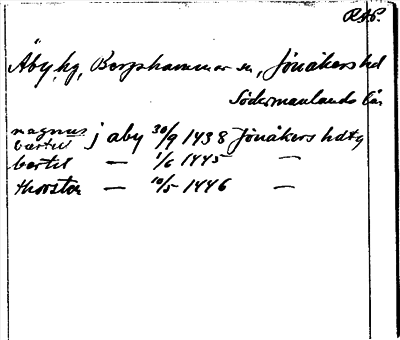 RAP.
Åby, hg, Bergshammar sn, Jönåkers hd
Södermanlands län
magnus j aby 30/9 1438 Jönåkers hdtg
bertil
bertil — 1/6 1445 —
thorsten — 10/5 1446 —